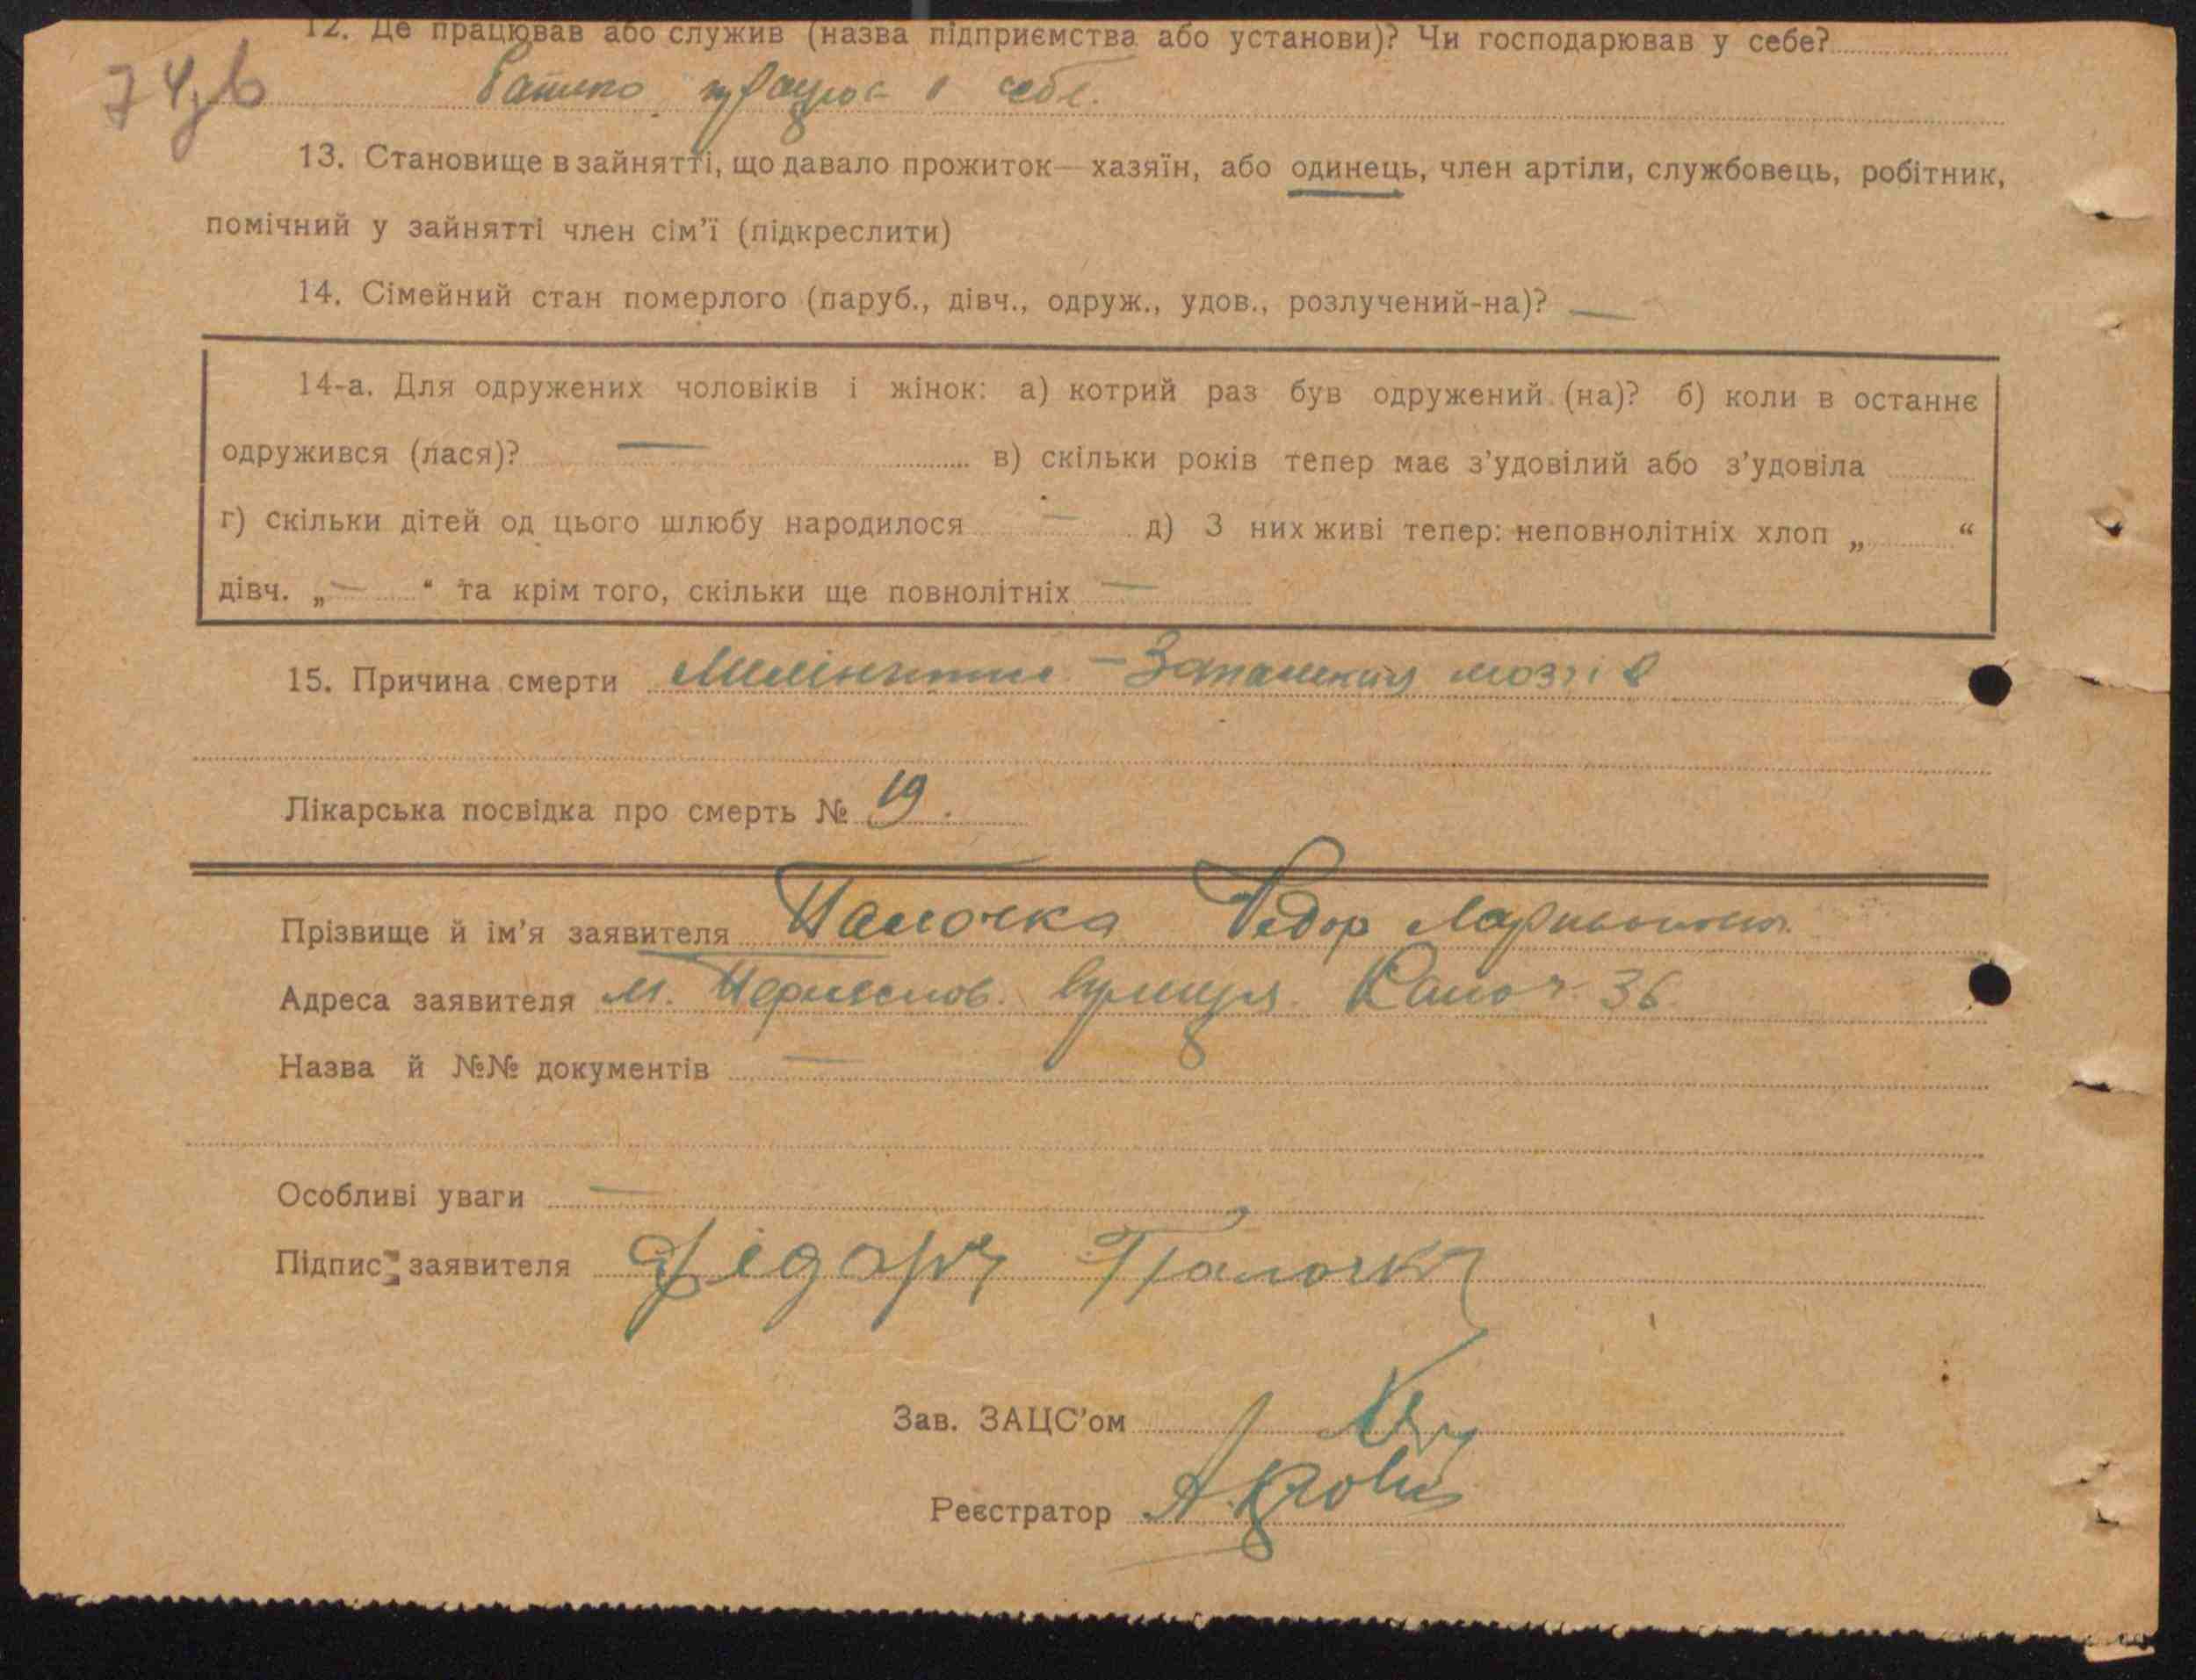 12. Де працював або служив (назва підприємства або установи)? Чи господарював у себе?
74
Батько працює в себе.
13. Становище в зайнятті, що давало прожиток—хазяїн, або одинець, член артіли, службовець, робітник,
помічний у зайнятті член сім’ї (підкреслити)
14. Сімейний стан померлого (паруб., дівч., одруж., удов., розлучений-на)? —
14-а. Для одружених чоловіків і жінок: а) котрий раз був одружений (на)? б) коли в останнє
одружився (лася)? — в) скільки років тепер має з’удовілий або з’удовіла
г) скільки дітей од цього шлюбу народилося — д) З них живі тепер: неповнолітніх хлоп „ “
дівч. „ — “ та крім того, скільки ще повнолітніх —
15. Причина смерти — Запалення мозгів
Лікарська посвідка про смерть № 19.
Прізвище й ім’я заявителя Палочка Федор
Адреса заявителя м. вулиця 36
Назва й №№ документів —
Особливі уваги —
Підпис заявителя Федор Палочка
Зав. ЗАЦС’ом
Реєстратор А.